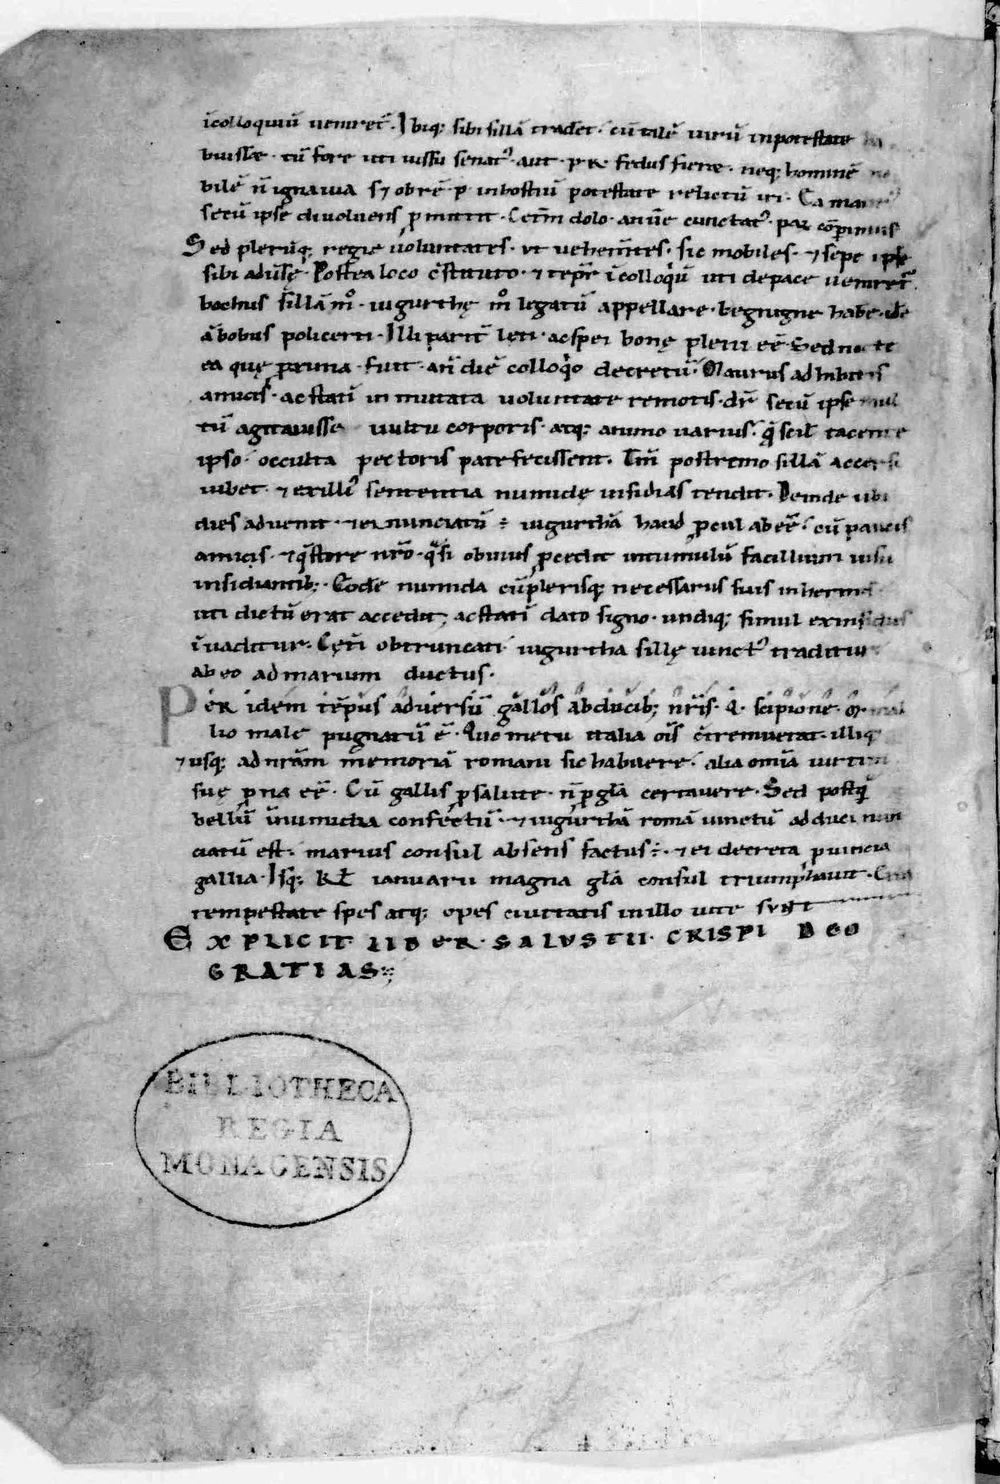 icolloquiū veniret᷑. Ibiq; sibi sillā traderet. cū talē virū inpotestate
buisset. tū fore uti iussu senat᷑. aut. p. R. fedus fieret. neq; hominē
bilē ñ ignavia sꝫ obrē p. inhostiū potestate relictū iri.
secū ipse divolvens pmittit. Cetm dolo. an ue᷑ cunctat᷑. parum cōpimus
Sed plerūq; regie voluntates. ut vehem̄tes. sic mobiles. ⁊ sepe ipse
sibi advsę. Postea loco cstituto. ⁊ tēpre icolloqū uti depace veniret᷑.
bochus sillā m̊. iugurthę m̊ legatū appellare. benigne habe. ide
ābobus policeri. Illi parit̄ leti. ac spei bonę pleni eē. Sed nocte
ea quę pxima fuit. añ diē colloqio decretū. Maurus adhibitis
amicis. ac statī inmutata voluntate remotis. dr̄ secū ipse mul
tū agitavisse vultu corporis. atq; animo varius. q scil tacente
ipso. occulta pectoris patefecissent. Tm̄ postremo sillā accersi
iubet. ⁊ exilli᷑ sententia numidę insidias tendit. Deinde ubi
dies advenit. ⁊ ei nunciatū ÷ iugurthā haud pcul abeē. cū paucis
amicis. ⁊ qstore nr̄o. qsi obvius pcedit intumulū facillimū visu
insidiantib;. Eodē numida cū plerisq; necessariis suis inhermis
uti dictū erat accedit, ac statī dato signo. undiq; simul exinsidiis
īvaditur. Cętī obtruncati iugurtha sillę vinct᷑ traditur
ab eo admarium ductus.
Per idem tēpus adversū gallos abducib; nr̄is. Q. scipione. ⁊ M. mal
lio male pugnatū ē. Quo metu italia oīs ctremuerat. illiq;
⁊ usq; ad nrām memoriā romani sic habuere. alia omīa virtuti
suę prona eē. Cū gallis psalute. ñ p glā certavere. Sed postq
bellū īnumidia confectū. ⁊ iugurthā romā vinctū adduci nun
ciatū est. marius consul absens factus ÷. ⁊ ei decreta pvincia
gallia. Isq; Kl̄ ianuarii magna glā consul triumphavit. Et ea
tempestate spes atq; opes civitatis inillo site sunt
EXPLICIT LIBER. SALVSTII. CRISPI DEO
GRATIAS
BIBLIOTHECA
REGIA
MONACENSIS